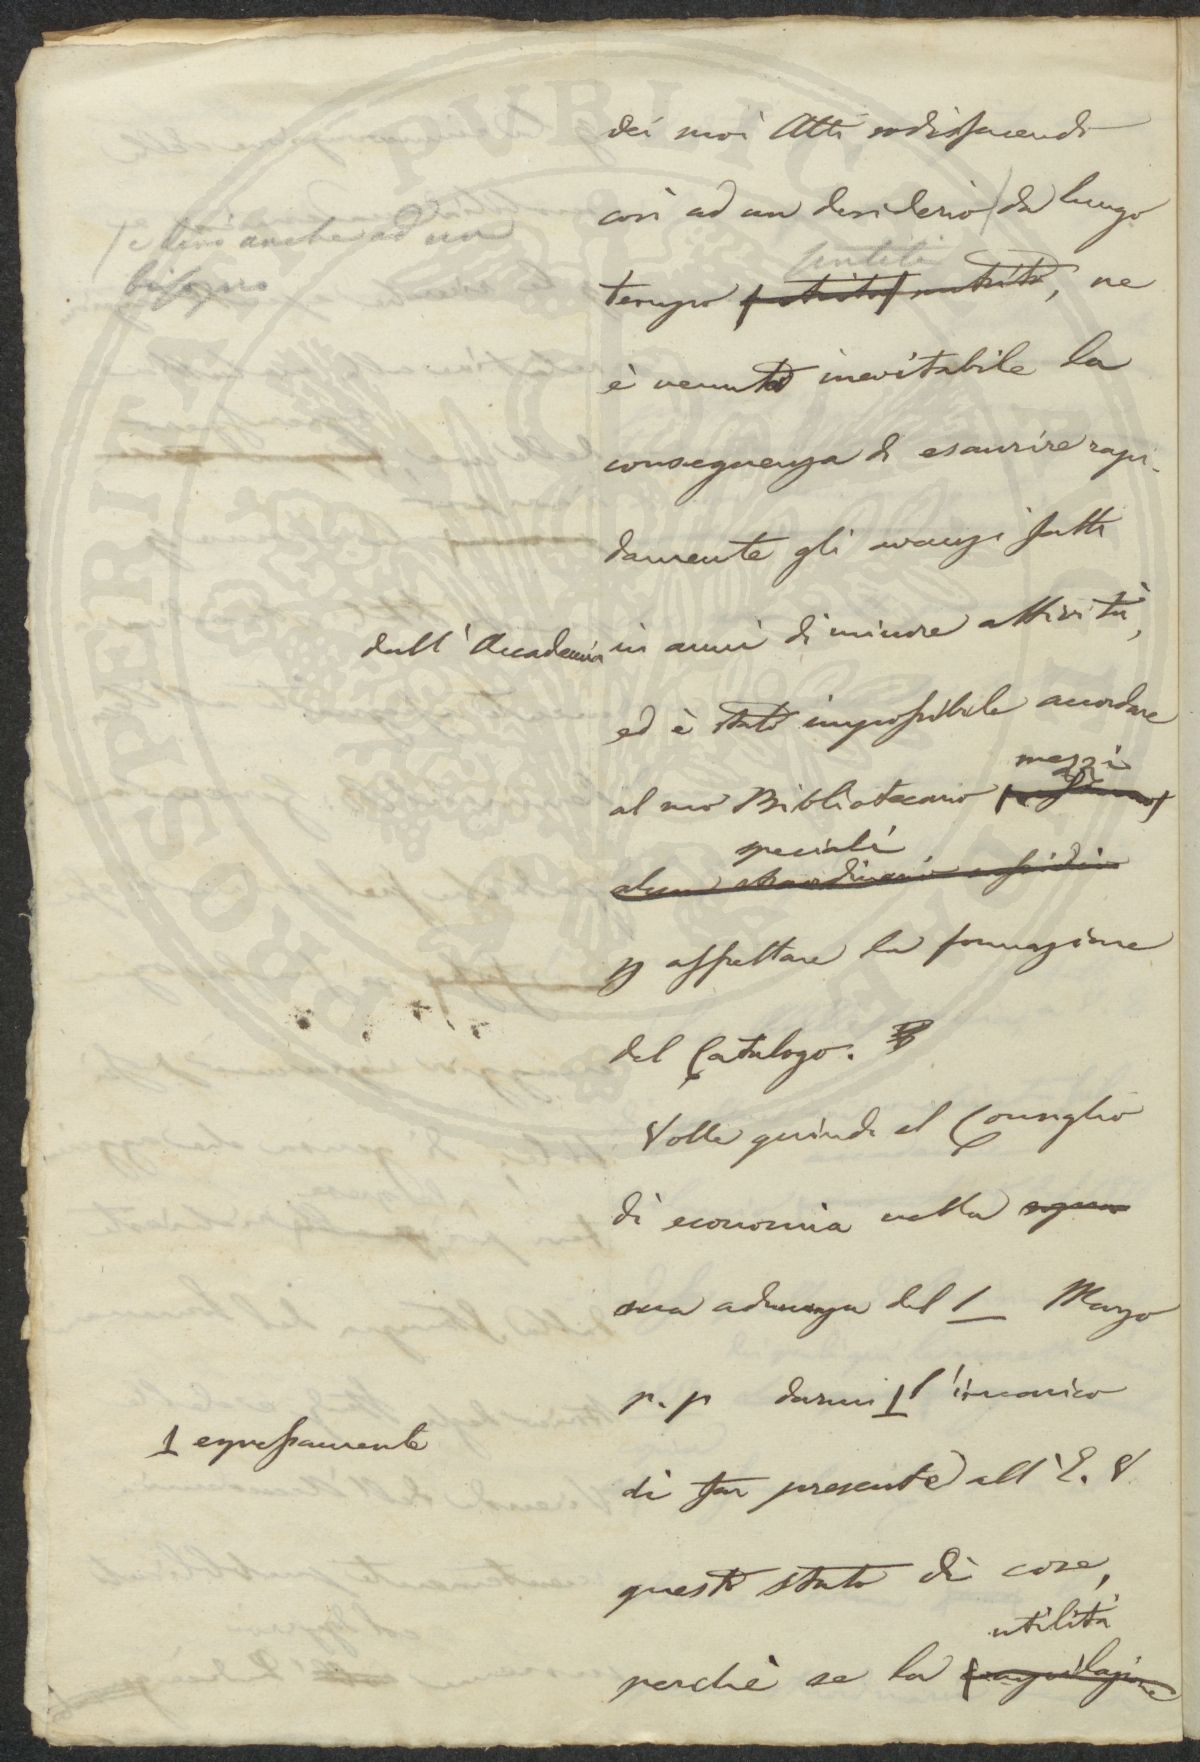 dei suoi Atti sodisfacendo
così ad un desiderio / da lungo
/ e direi anche ad un
bisogno
sentiti
tempo nutrito, ne
è venuta inevitabile la
conseguenza di esaurire rapi-
damente gli avanzi fatti
dall'Accademia in anni di minore attività,
ed è stato impossibile accordare
mezzi
al suo Bibliotecario
speciali
alcun straordinario sussidio
p affrettare la formazione
del Catalogo.
Volle quindi il Consiglio
di economia nella
sua adunanza del 1 Marzo
p. p darmi 1 l'incarico
1 espressamente
di far presente all'E. V.
questo stato di cose,
utilità
perchè se la compilazione